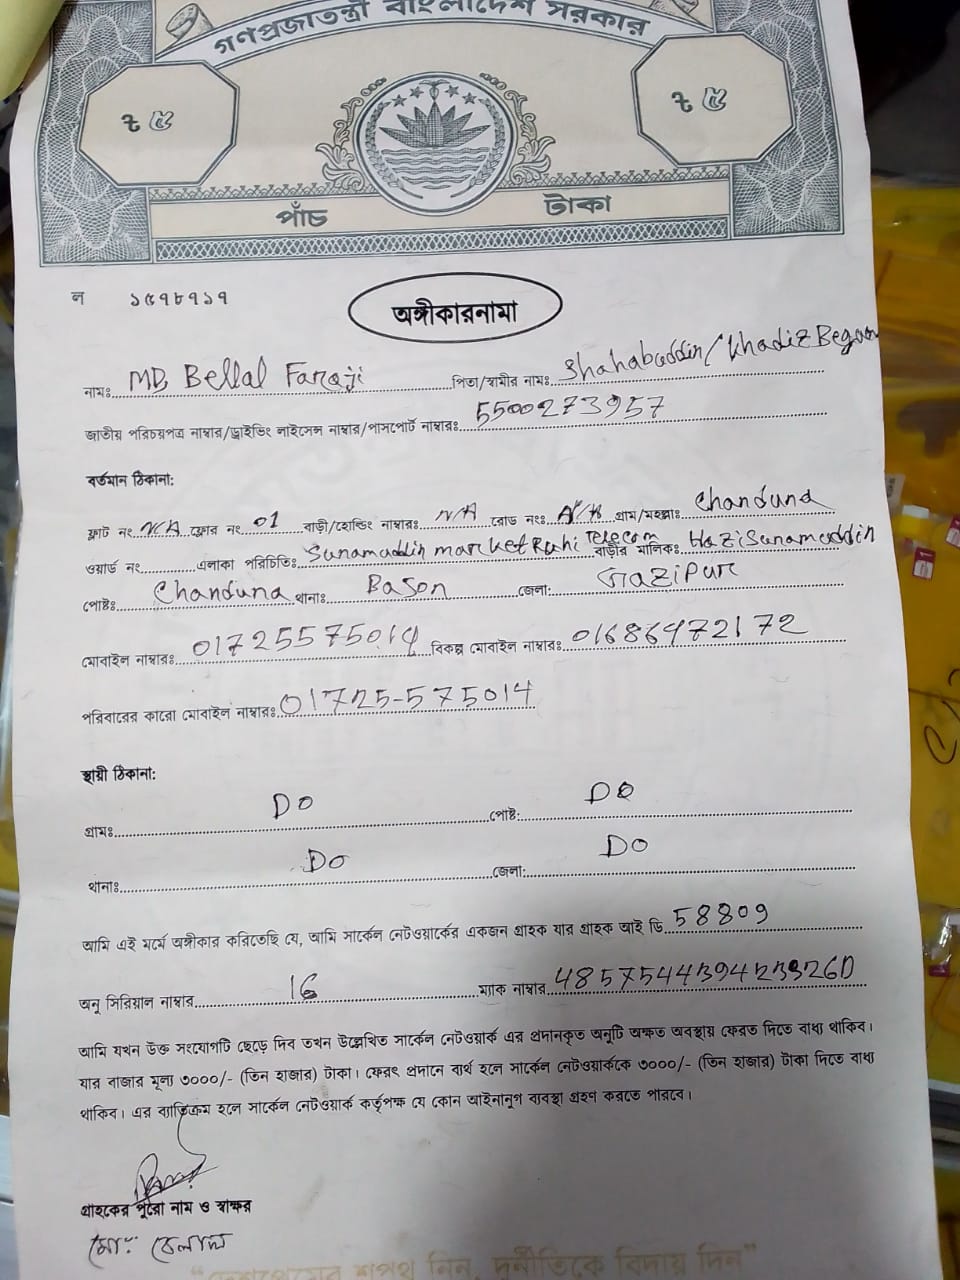 গণপ্রজাতন্ত্রী বাংলাদেশ সরকার
৳ ৫ ৳ ৫
পাঁচ টাকা
ন ১৫৭৮৭১৭
অঙ্গীকারনামা
নামঃ MD, Bellal Faraji পিতা/স্বামীর নামঃ Shahabuddin/Khadiz Begom
জাতীয় পরিচয়পত্র নাম্বার/ড্রাইভিং লাইসেন্স নাম্বার/পাসপোর্ট নাম্বারঃ 5500273957
বর্তমান ঠিকানা:
ফ্লাট নং N/A ফ্লোর নং 01 বাড়ী/হোল্ডিং নাম্বারঃ N/A রোড নংঃ গ্রাম/মহল্লাঃ Chanduna
ওয়ার্ড নং এলাকা পরিচিতিঃ Sunamuddin market Ruhi Telecom বাড়ীর মালিকঃ Hazi Sunamuddin
পোষ্টঃ Chanduna থানাঃ Bason জেলা: Gazipur
মোবাইল নাম্বারঃ 01725575014 বিকল্প মোবাইল নাম্বারঃ 01686472172
পরিবারের কারো মোবাইল নাম্বারঃ 01725-575014
স্থায়ী ঠিকানা:
গ্রামঃ DO পোষ্ট: DO
থানাঃ DO জেলা: DO
আমি এই মর্মে অঙ্গীকার করিতেছি যে, আমি সার্কেল নেটওয়ার্কের একজন গ্রাহক যার গ্রাহক আই ডি 58809
অনু সিরিয়াল নাম্বার 16 ম্যাক নাম্বার
আমি যখন উক্ত সংযোগটি ছেড়ে দিব তখন উল্লেখিত সার্কেল নেটওয়ার্ক এর প্রদানকৃত অনুটি অক্ষত অবস্থায় ফেরত দিতে বাধ্য থাকিব।
যার বাজার মূল্য ৩০০০/- (তিন হাজার) টাকা। ফেরৎ প্রদানে ব্যর্থ হলে সার্কেল নেটওয়ার্ককে ৩০০০/- (তিন হাজার) টাকা দিতে বাধ্য
থাকিব। এর ব্যতিক্রম হলে সার্কেল নেটওয়ার্ক কর্তৃপক্ষ যে কোন আইনানুগ ব্যবস্থা গ্রহণ করতে পারবে।
গ্রাহকের পুরো নাম ও স্বাক্ষর
মোঃ বেলাল
"দেশপ্রেমের শপথ নিন, দুর্নীতিকে বিদায় দিন"